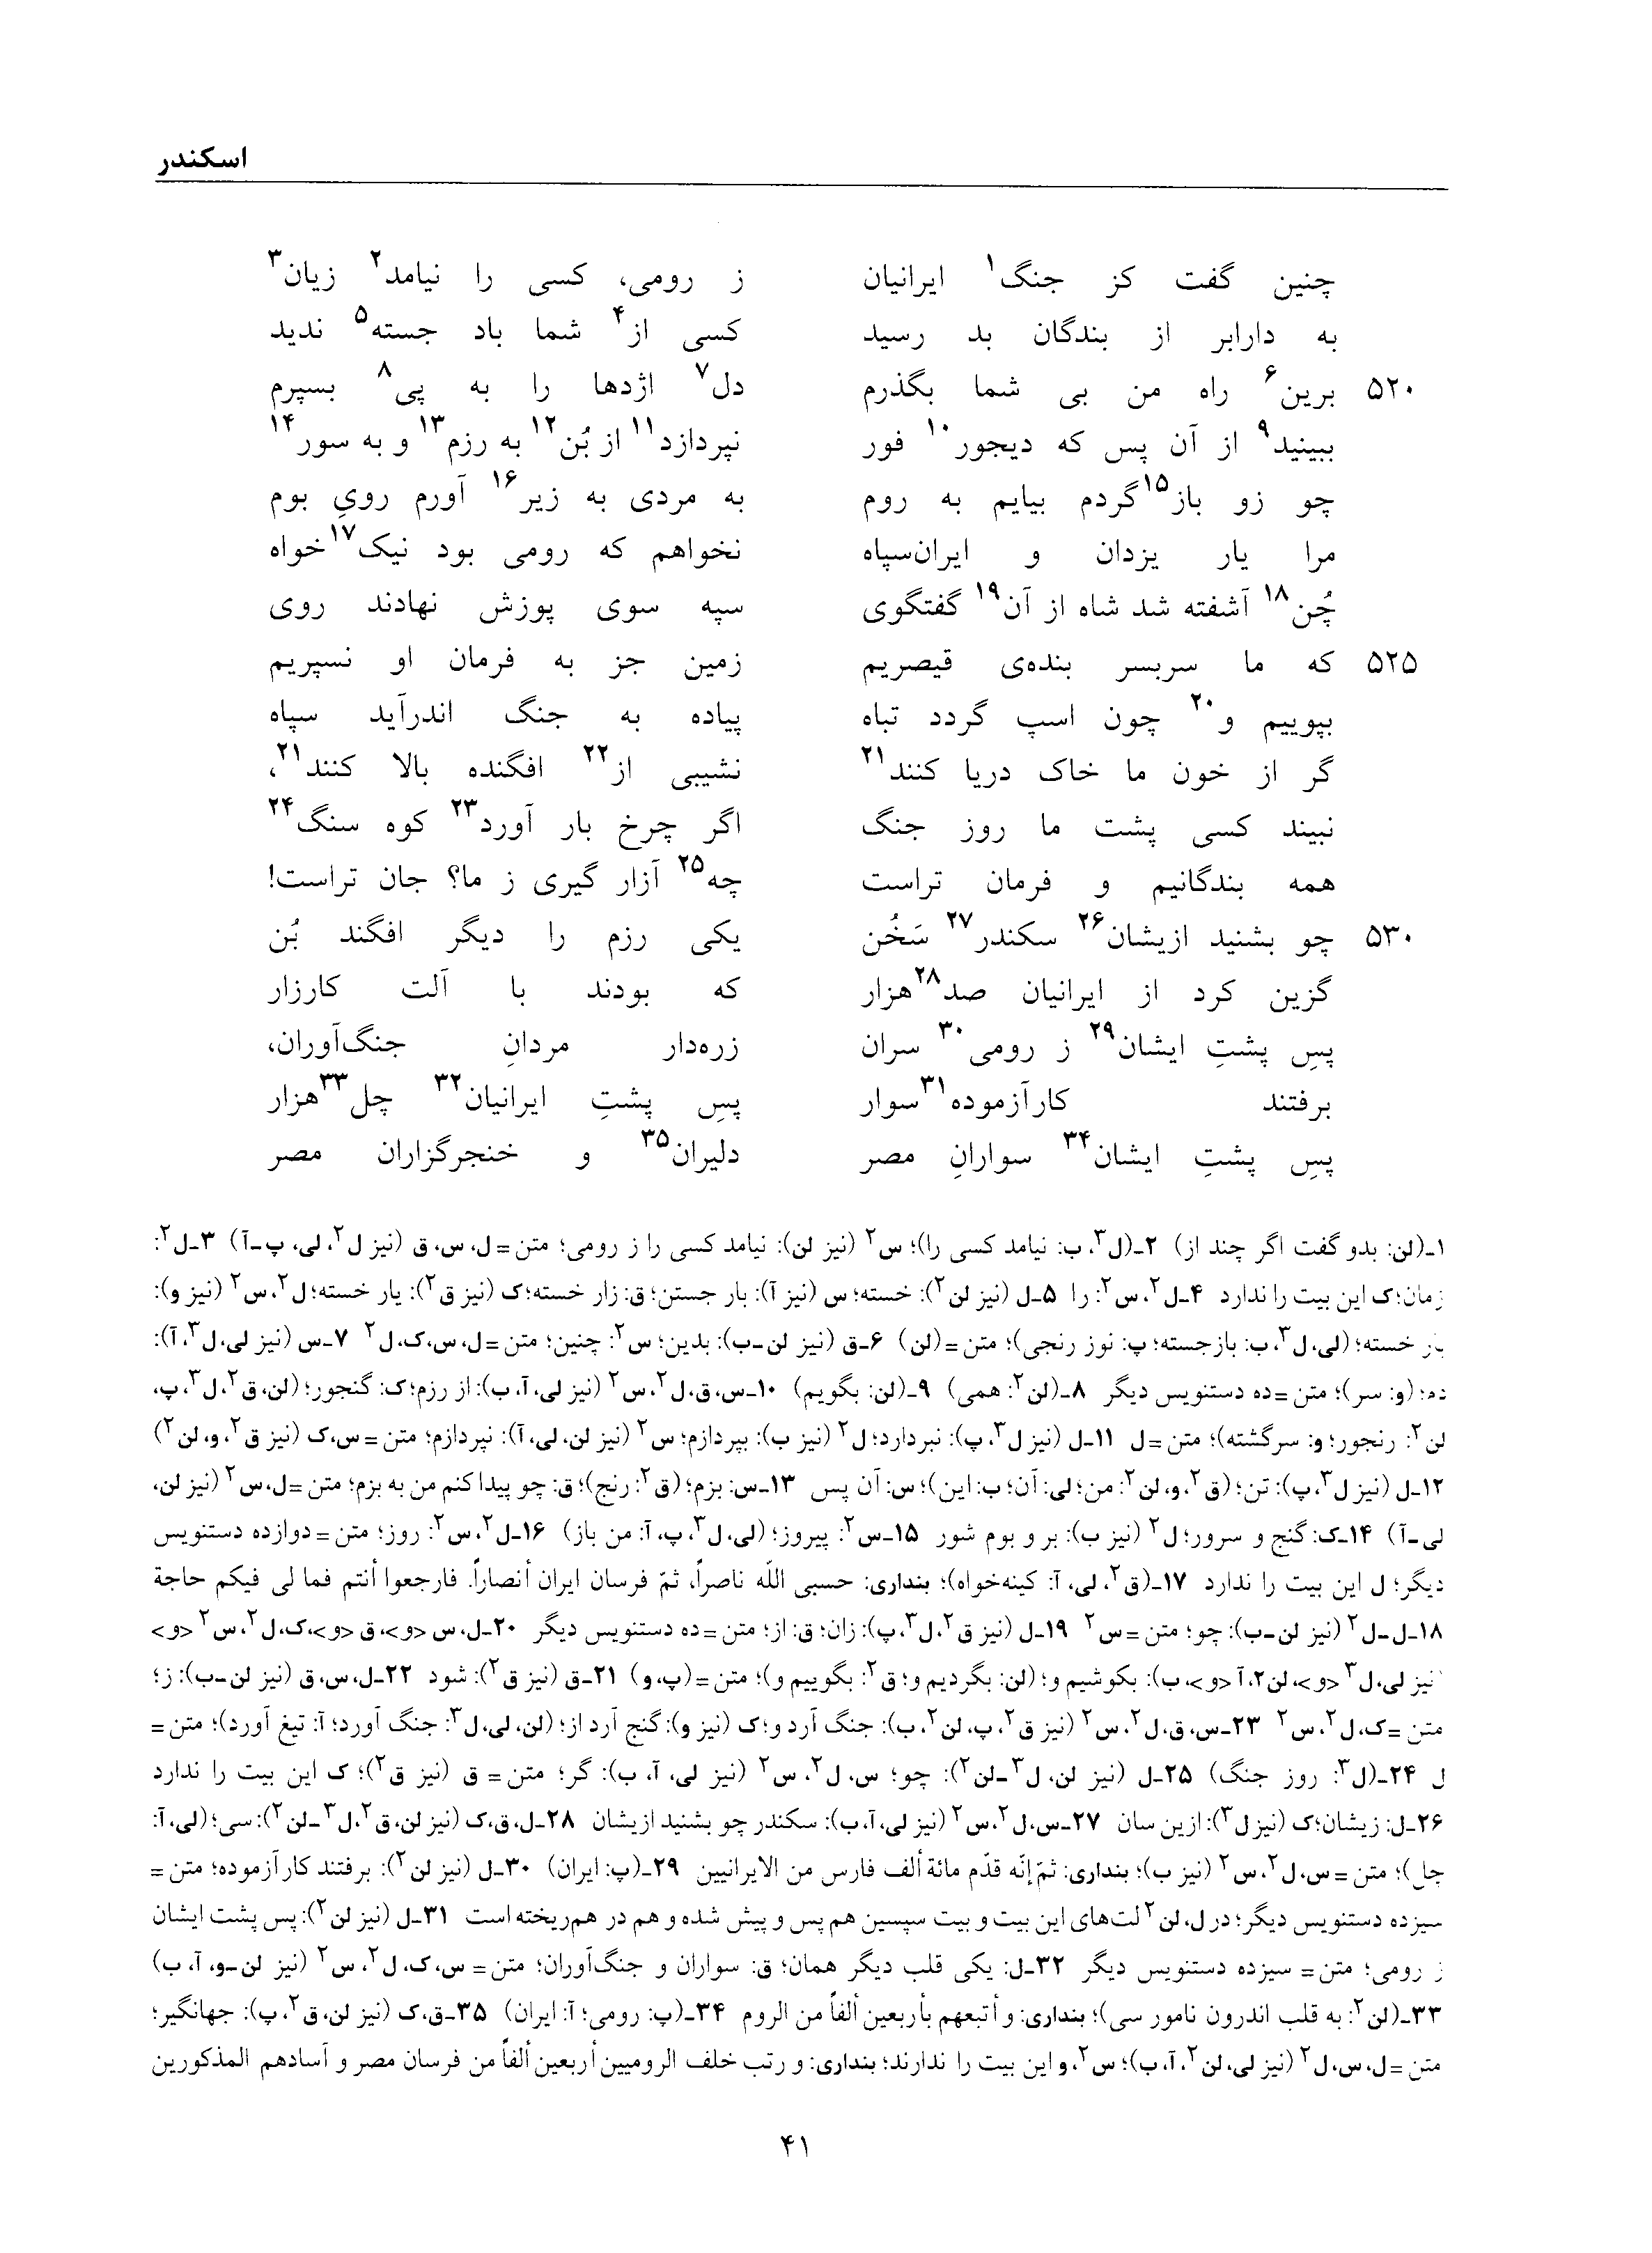 اسکندر
چنین گفت کز جنگ۱ ایرانیان ز رومی، کسی را نیامد۲ زیان۳
به دارابر از بندگان بد رسید کسی از۴ شما باد جسته۵ ندید
۵۲۰ برین۶ راه من بی شما بگذرم دل۷ اژدها را به پی۸ بسپرم
ببینید۹ از آن پس که دیجور۱۰ فور نپردازد۱۱ از بُن۱۲ به رزم۱۳ و به سور۱۴
چو زو باز۱۵گردم بیایم به روم به مردی به زیر۱۶ آورم رویِ بوم
مرا یار یزدان و ایران‌سپاه نخواهم که رومی بود نیک۱۷خواه
چُن۱۸ آشفته شد شاه از آن۱۹ گفتگوی سپه سوی پوزش نهادند روی
۵۲۵ که ما سربسر بنده‌ی قیصریم زمین جز به فرمان او نسپریم
بپوییم و۲۰ چون اسپ گردد تباه پیاده به جنگ اندرآید سپاه
گر از خون ما خاک دریا کنند۲۱ نشیبی از۲۲ افگنده بالا کنند۲۱،
نبیند کسی پشت ما روز جنگ اگر چرخ بار آورد۲۳ کوه سنگ۲۴
همه بندگانیم و فرمان تراست چه۲۵ آزار گیری ز ما؟ جان تراست!
۵۳۰ چو بشنید ازیشان۲۶ سکندر۲۷ سَخُن یکی رزم را دیگر افگند بُن
گزین کرد از ایرانیان صد۲۸هزار که بودند با آلت کارزار
پسِ پشتِ ایشان۲۹ ز رومی۳۰ سران زره‌دار مردانِ جنگ‌آوران،
برفتند کارآزموده۳۱سوار پسِ پشتِ ایرانیان۳۲ چل۳۳هزار
پسِ پشتِ ایشان۳۴ سوارانِ مصر دلیران۳۵ و خنجرگزاران مصر
۱ـ(لن: بدو گفت اگر چند از) ۲ـ(ل۳، ب: نیامد کسی را)؛ س۲ (نیز لن): نیامد کسی را ز رومی؛ متن=ل، س، ق (نیز ل۲، لی، پ‌ـآ) ۳ـل۲:
زمان؛ک این بیت را ندارد ۴ـل۲، س۲: را ۵ـل (نیز لن۲): خسته؛ س (نیز آ): بار جستن؛ ق: زار خسته؛ک (نیز ق۲): یار خسته؛ل۲، س۲ (نیز و):
باز خسته؛ (لی، ل۳، ب: بازجسته؛ پ: نوز رنجی)؛ متن=(لن) ۶ـق (نیز لن‌ـب): بدین؛ س۲: چنین؛ متن=ل، س،ک، ل۲ ۷ـس (نیز لی، ل۳، آ):
دم؛ (و: سر)؛ متن=ده دستنویس دیگر ۸ـ(لن۲: همی) ۹ـ(لن: بگویم) ۱۰ـس، ق، ل۲، س۲ (نیز لی، آ، ب): از رزم؛ک: گنجور؛ (لن، ق۲، ل۳، پ،
لن۲: رنجور؛ و: سرگشته)؛ متن=ل ۱۱ـل (نیز ل۳، پ): نبردارد؛ ل۲ (نیز ب): بپردازم؛ س۲ (نیز لن، لی، آ): نپردازم؛ متن=س،ک (نیز ق۲، و، لن۲)
۱۲ـل (نیز ل۳، پ): تن؛ (ق۲، و، لن۲: من؛ لی: آن؛ ب: این)؛ س: آن پس ۱۳ـس: بزم؛ (ق۲: رنج)؛ ق: چو پیدا کنم من به بزم؛ متن=ل، س۲ (نیز لن،
لی‌ـآ) ۱۴ـک: گنج و سرور؛ ل۲ (نیز ب): بر و بوم شور ۱۵ـس۲: پیروز؛ (لی، ل۳، پ، آ: من باز) ۱۶ـل۲، س۲: روز؛ متن=دوازده دستنویس
دیگر؛ ل این بیت را ندارد ۱۷ـ(ق۲، لی، آ: کینه‌خواه)؛ بنداری: حسبی اللّه ناصراً، ثمّ فرسان ایران أنصاراً. فارجعوا أنتم فما لی فیکم حاجة
۱۸ـل‌ـل۲ (نیز لن‌ـب): چو؛ متن=س۲ ۱۹ـل (نیز ق۲، ل۳، پ): زان؛ ق: از؛ متن=ده دستنویس دیگر ۲۰ـل، س <و>، ق <و>،ک، ل۲، س۲ <و>
(نیز لی، ل۳ <و>، لن۲، آ <و>، ب): بکوشیم و؛ (لن: بگردیم و؛ ق۲: بگوییم و)؛ متن=(پ، و) ۲۱ـق (نیز ق۲): شود ۲۲ـل، س، ق (نیز لن‌ـب): ز؛
متن=ک، ل۲، س۲ ۲۳ـس، ق، ل۲، س۲ (نیز ق۲، پ، لن۲، ب): جنگ آرد و؛ک (نیز و): گنج آرد از؛ (لن، لی، ل۳: جنگ آورد؛ آ: تیغ آورد)؛ متن=
ل ۲۴ـ(ل۳: روز جنگ) ۲۵ـل (نیز لن، ل۳‌ـلن۲): چو؛ س، ل۲، س۲ (نیز لی، آ، ب): گر؛ متن= ق (نیز ق۲)؛ ک این بیت را ندارد
۲۶ـل: زیشان؛ک (نیز ل۳): ازین سان ۲۷ـس، ل۲، س۲ (نیز لی، آ، ب): سکندر چو بشنید ازیشان ۲۸ـل، ق،ک (نیز لن، ق۲، ل۳‌ـلن۲): سی؛ (لی، آ:
چل)؛ متن=س، ل۲، س۲ (نیز ب)؛ بنداری: ثمّ إنّه قدّم مائة ألف فارس من الایرانیین ۲۹ـ(پ: ایران) ۳۰ـل (نیز لن۲): برفتند کارآزموده؛ متن=
سیزده دستنویس دیگر؛ در ل، لن۲ لت‌های این بیت و بیت سپسین هم پس و پیش شده و هم در هم‌ریخته است ۳۱ـل (نیز لن۲): پس پشت ایشان
ز رومی؛ متن= سیزده دستنویس دیگر ۳۲ـل: یکی قلب دیگر همان؛ ق: سواران و جنگ‌آوران؛ متن= س،ک، ل۲، س۲ (نیز لن‌ـو، آ، ب)
۳۳ـ(لن۲: به قلب اندرون نامور سی)؛ بنداری: و أتبعهم بأربعین ألفاً من الروم ۳۴ـ(پ: رومی؛ آ: ایران) ۳۵ـق،ک (نیز لن، ق۲، پ): جهانگیر؛
متن=ل، س، ل۲ (نیز لی، لن۲، آ، ب)؛ س۲، و این بیت را ندارند؛ بنداری: و رتب خلف الرومیین أربعین ألفاً من فرسان مصر و آسادهم المذکورین
۴۱